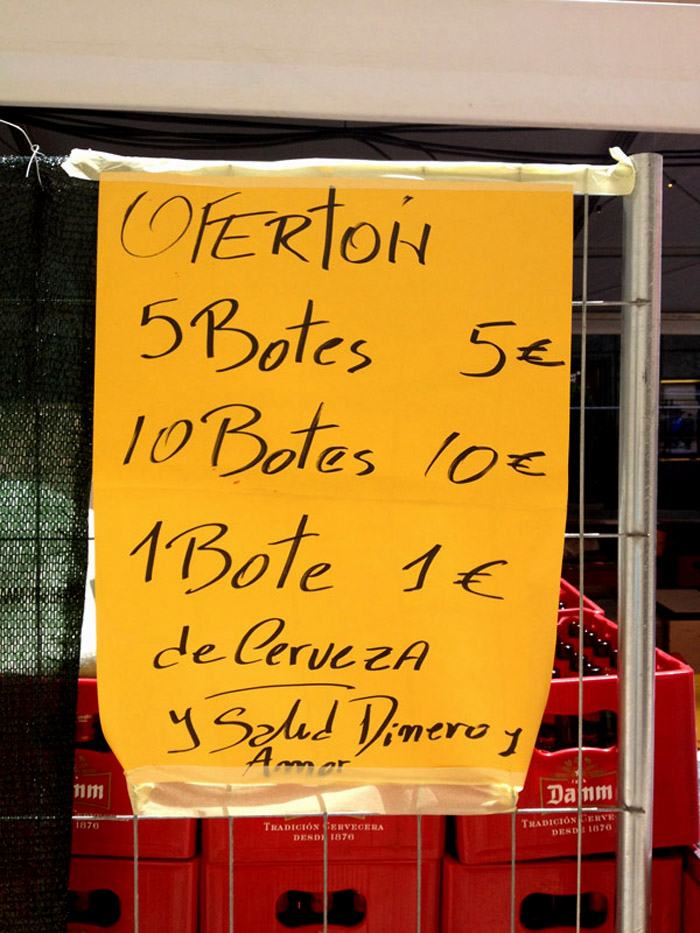 OFERTÓN
5 Botes 5€
10 Botes 10€
1 Bote 1€
de Cerveza
y Salud Dinero y
Amor
Damm
1876
TRADICIÓN CERVECERA
DESDE 1876
Damm
TRADICIÓN CERVE
DESDE 1876